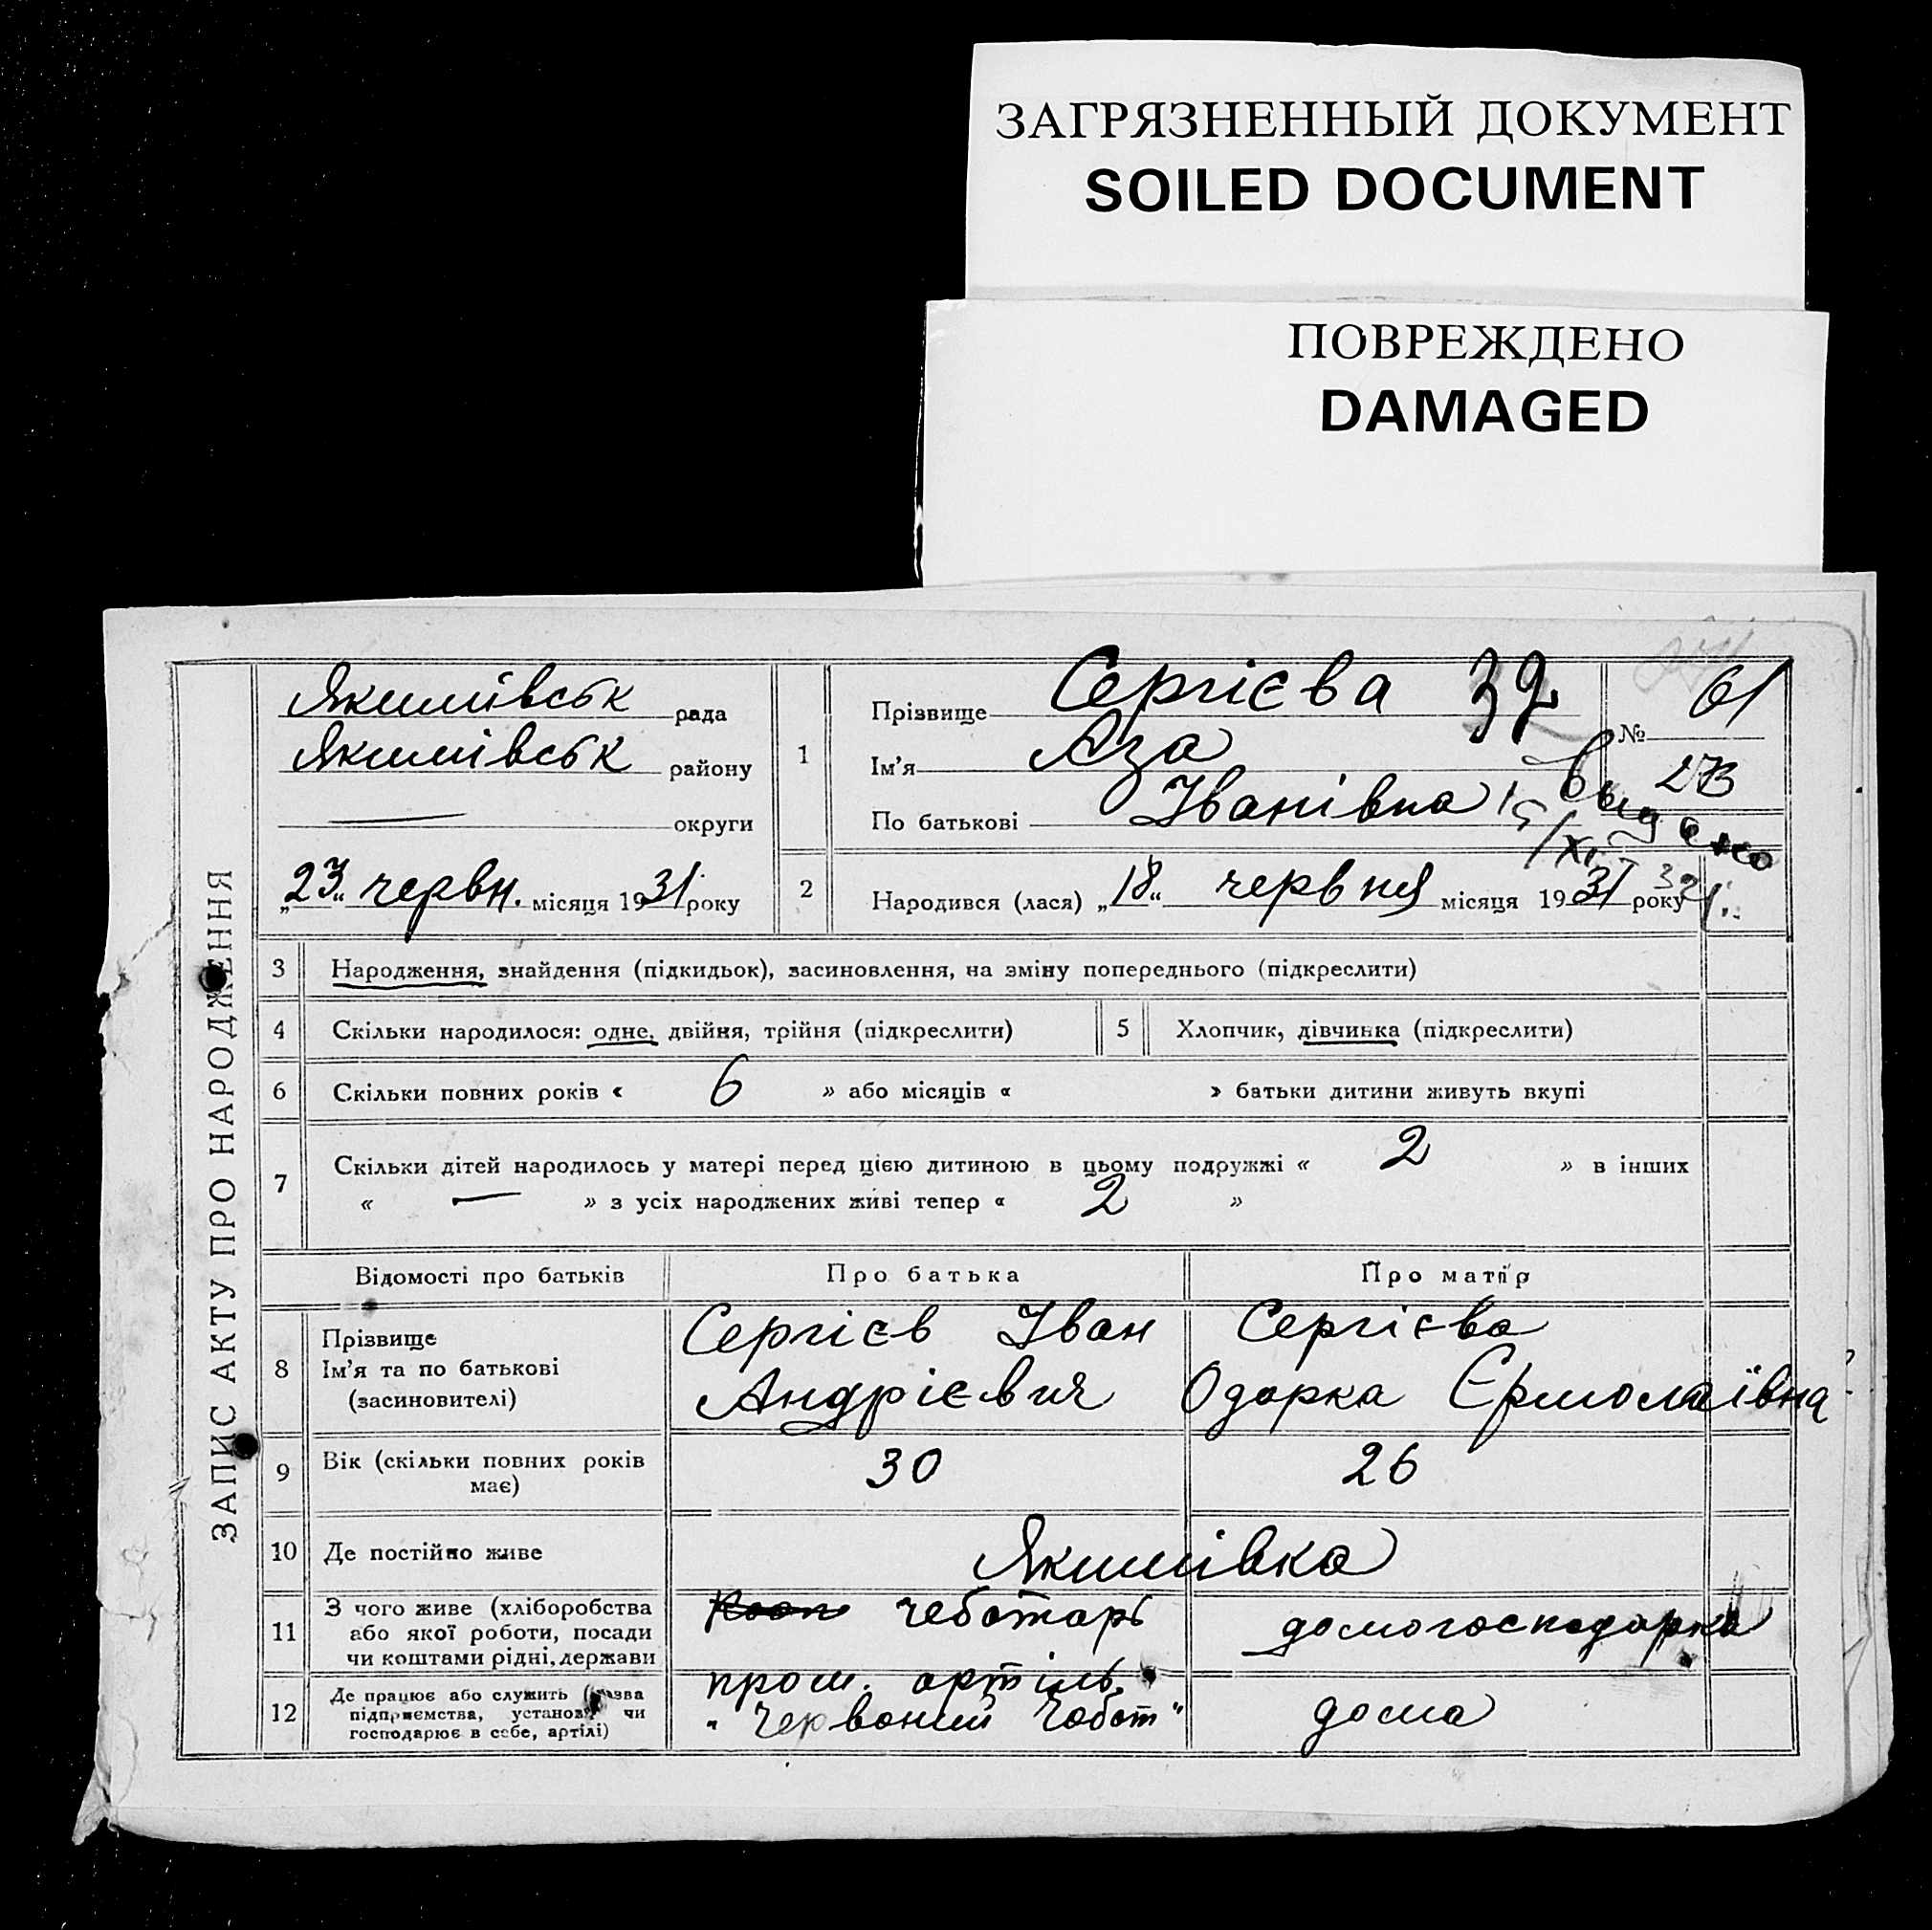 ЗАГРЯЗНЕННЫЙ ДОКУМЕНТ
SOILED DOCUMENT
ПОВРЕЖДЕНО
DAMAGED
ЗАПИС АКТУ ПРО НАРОДЖЕННЯ
Якимівськ рада
Якимівськ району
— округи
„23“ червн. місяця 1931 року
1
Прізвище Сергієва 32
Ім'я Аза
По батькові Іванівна
№ 61
273
Выдано
15/XII 32 г.
2 Народився (лася) „18“ червня місяця 1931 року
3 Народження, знайдення (підкидьок), засиновлення, на зміну попереднього (підкреслити)
4 Скільки народилося: одне, двійня, трійня (підкреслити) 5 Хлопчик, дівчинка (підкреслити)
6 Скільки повних років « 6 » або місяців « » батьки дитини живуть вкупі
7 Скільки дітей народилось у матері перед цією дитиною в цьому подружжі « 2 » в інших
« — » з усіх народжених живі тепер « 2 »
Відомості про батьків Про батька Про матір
8 Прізвище
Ім'я та по батькові
(засиновителі)
Сергієв Іван
Андрієвич
Сергієва
Одарка Єрмолаївна
9 Вік (скільки повних років
має)
30 26
10 Де постійно живе Якимівка
11 З чого живе (хліборобства
або якої роботи, посади
чи коштами рідні, держави
чеботарь домогосподарка
12 Де працює або служить (назва
підприємства, установи чи
господарює в себе, артілі)
пром. артіль
„Червоний Чобот“
дома